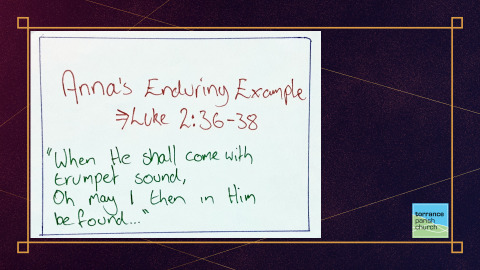 Anna's Enduring Example
⇒Luke 2:36-38
"When He shall come with
trumpet sound,
Oh may I then in Him
be found..."
torrance
parish
church